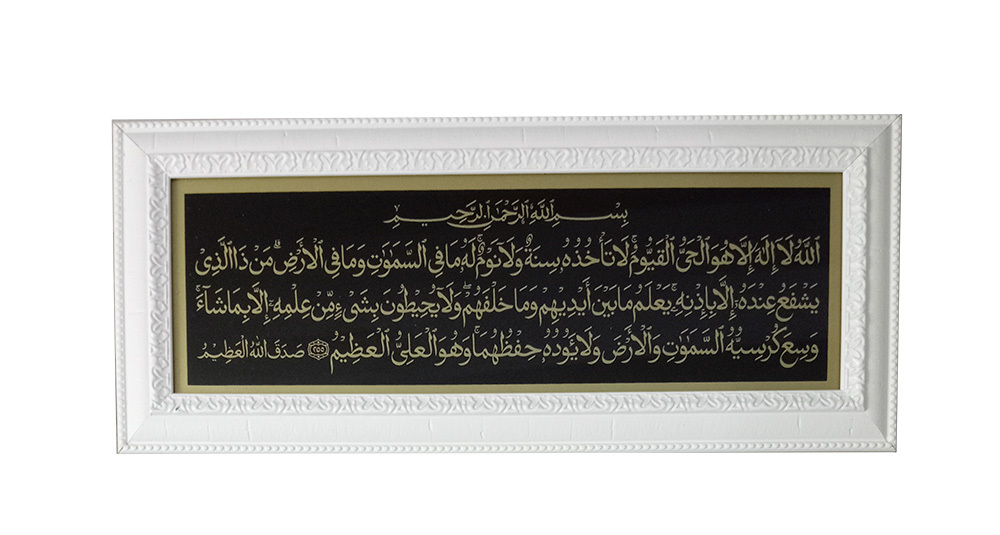 بِسْمِ اللَّهِ الرَّحْمَٰنِ الرَّحِيمِ
اَللَّهُ لَا إِلَٰهَ إِلَّا هُوَ الْحَيُّ الْقَيُّومُ ۚ لَا تَأْخُذُهُ سِنَةٌ وَلَا نَوْمٌ ۚ لَهُ مَا فِي السَّمَٰوَٰتِ وَمَا فِي الْأَرْضِ ۗ مَنْ ذَا الَّذِي
يَشْفَعُ عِنْدَهُ إِلَّا بِإِذْنِهِ ۚ يَعْلَمُ مَا بَيْنَ أَيْدِيهِمْ وَمَا خَلْفَهُمْ ۖ وَلَا يُحِيطُونَ بِشَيْءٍ مِنْ عِلْمِهِ إِلَّا بِمَا شَاءَ ۚ
وَسِعَ كُرْسِيُّهُ السَّمَٰوَٰتِ وَالْأَرْضَ ۖ وَلَا يَئُودُهُ حِفْظُهُمَا ۚ وَهُوَ الْعَلِيُّ الْعَظِيمُ ﴿٢٥٥﴾ صَدَقَ اللَّهُ الْعَظِيمُ